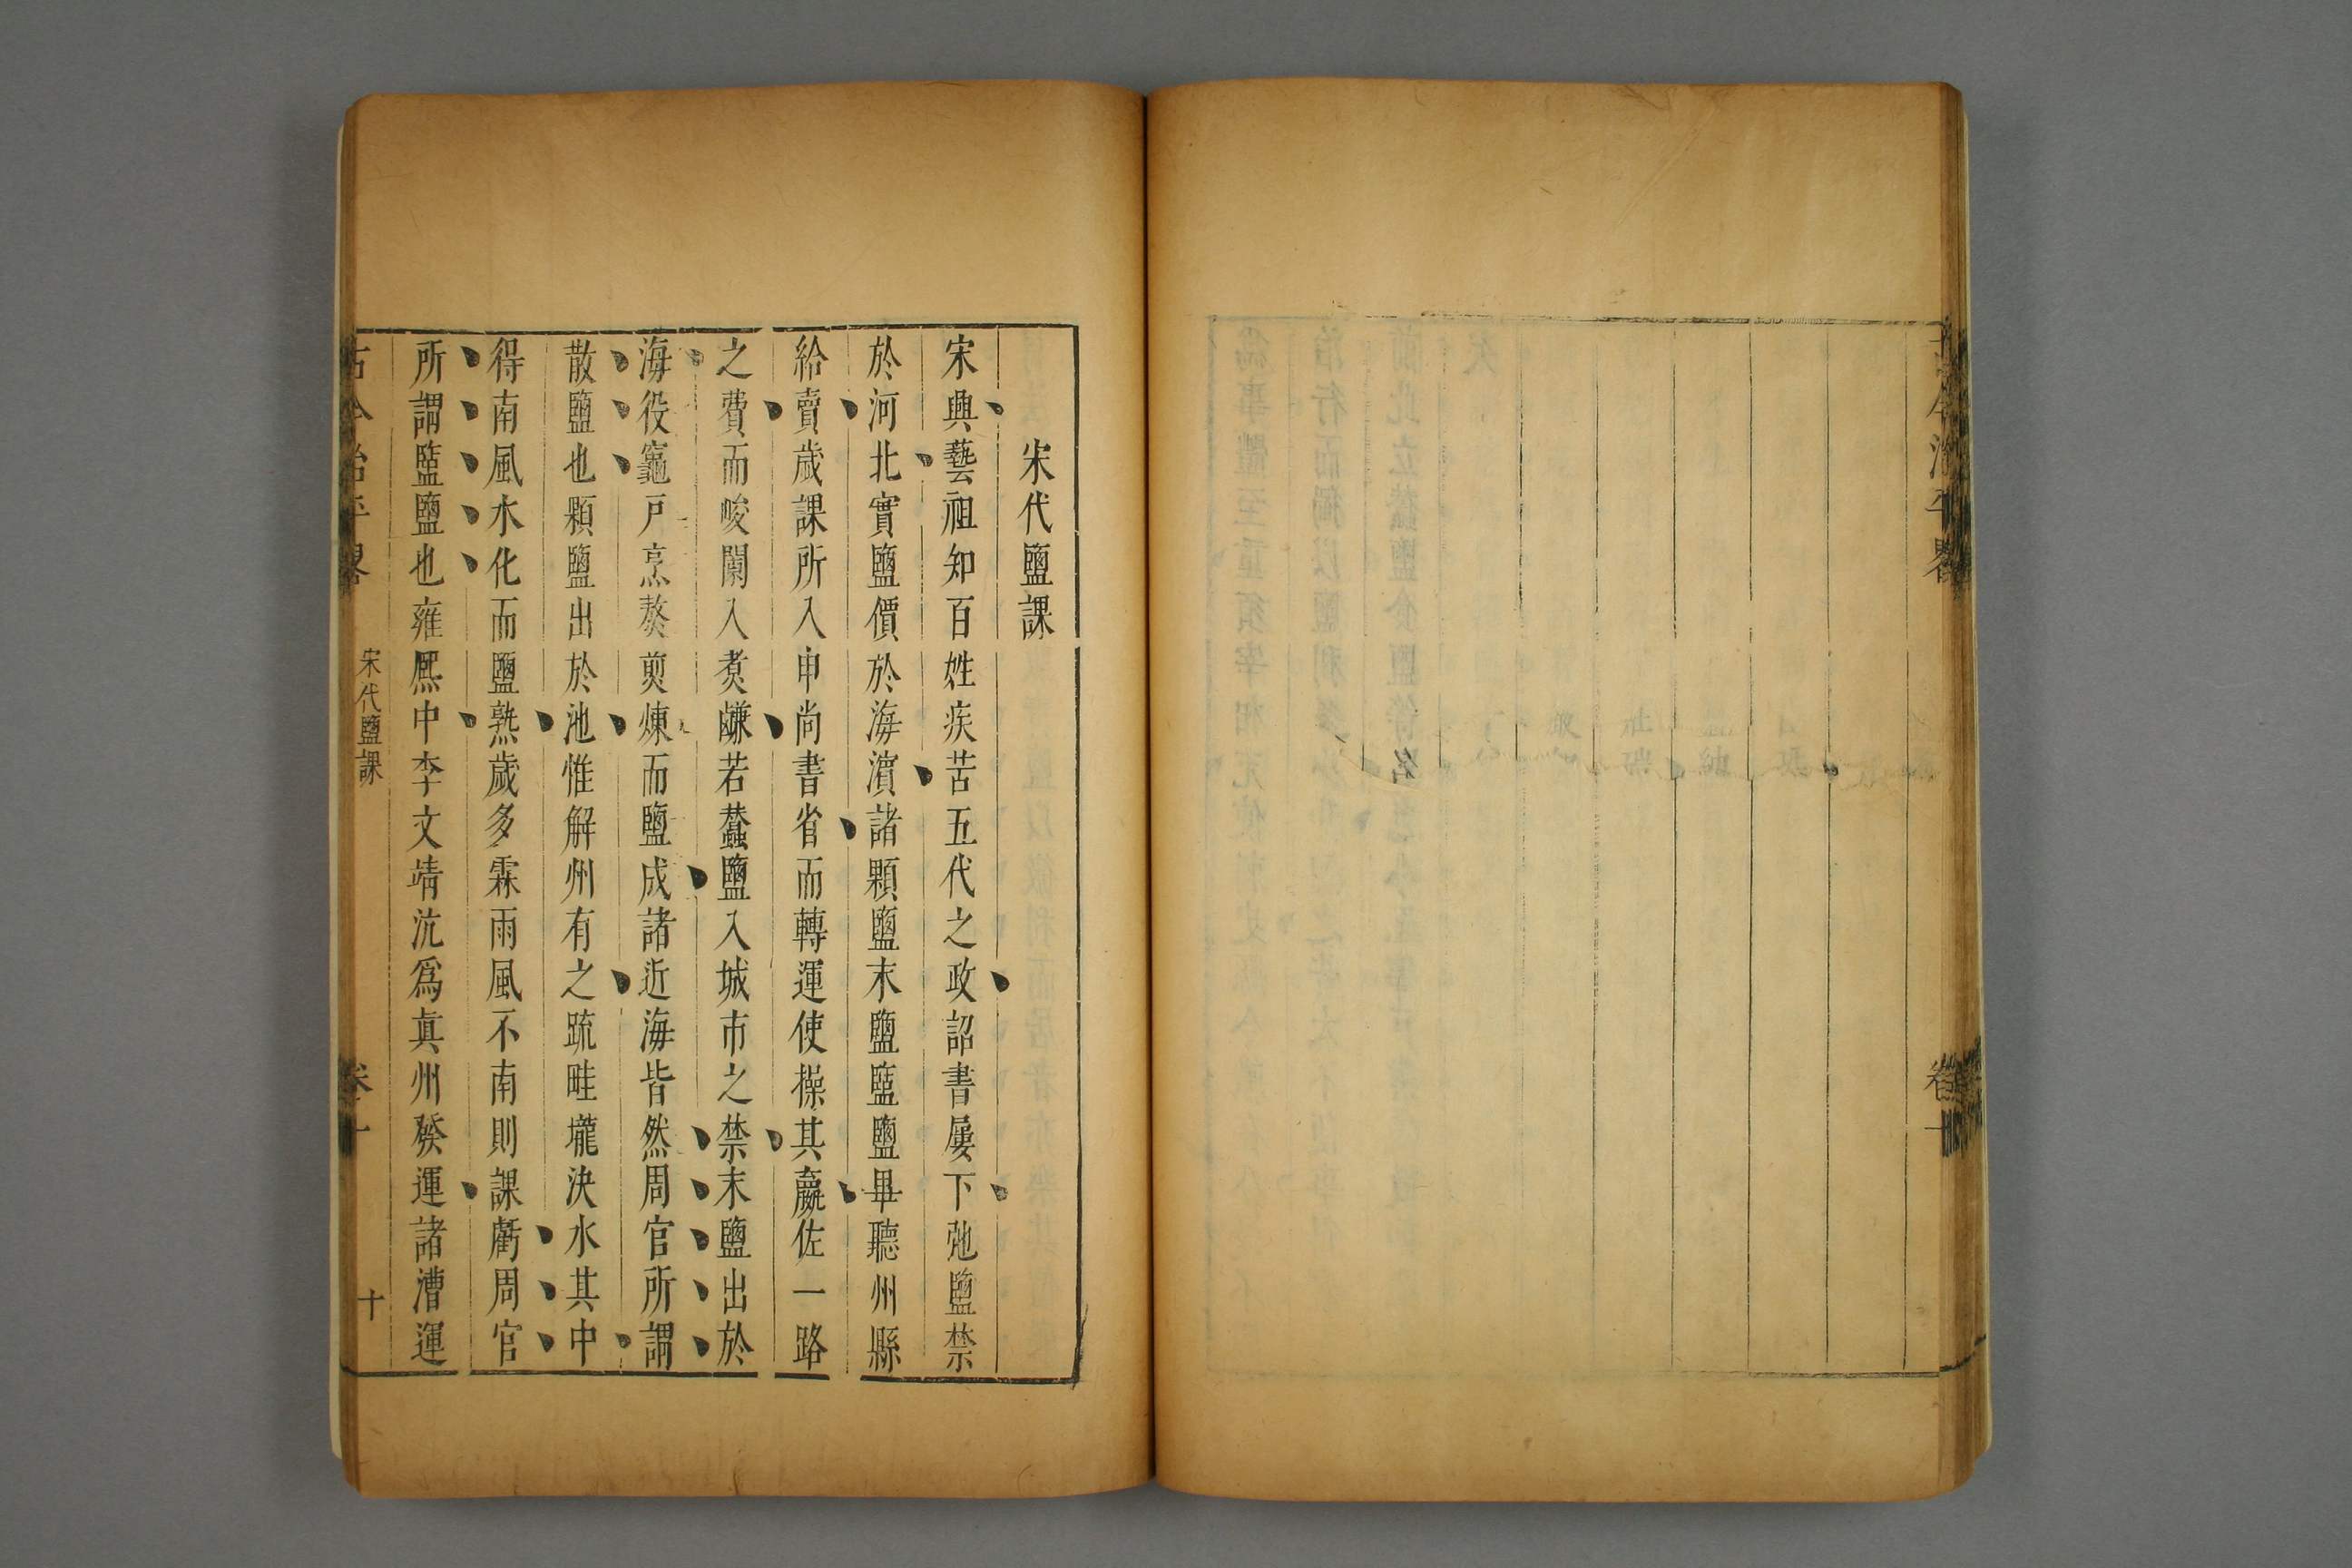 宋代鹽課
宋興藝祖知百姓疾苦五代之政詔書屢下弛鹽禁
於河北實鹽價於海濱諸顆鹽末鹽盬鹽畢聽州縣
給賣歲課所入申尚書省而轉運使操其贏佐一路
之費而峻闌入煑鹻若蠶鹽入城市之禁末鹽出於
海役竈戸烹熬煎煉而鹽成諸近海皆然周官所謂
散鹽也顆鹽出於池惟解州有之疏畦壠決水其中
得南風水化而鹽熟歲多霖雨風不南則課虧周官
所謂盬鹽也雍熈中李文靖沆爲真州發運諸漕運
古今治平畧
宋代鹽課
卷十
十